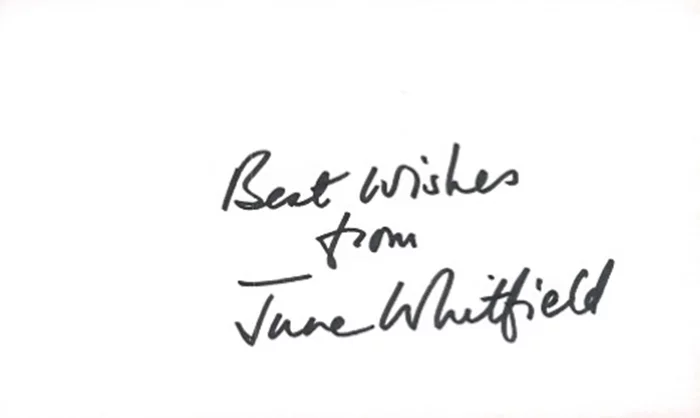 Best Wishes
from
June Whitfield